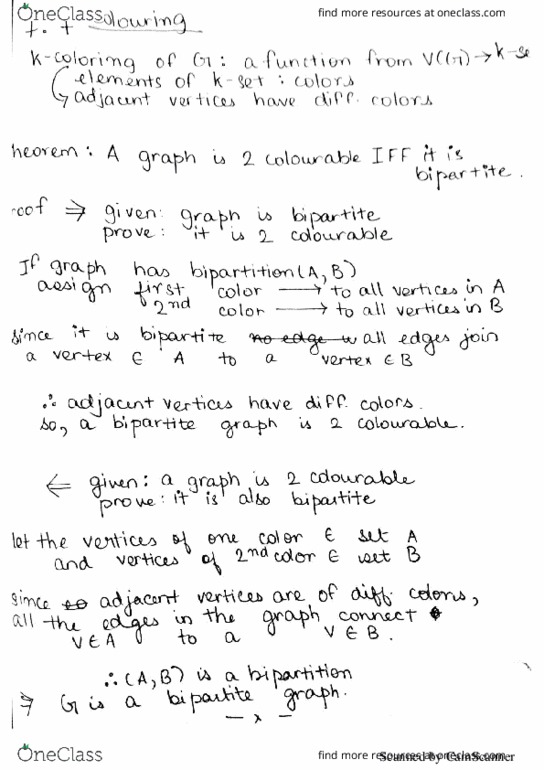 OneClass
find more resources at oneclass.com
Colouring
k-coloring of G : a function from V(G) → k-se
elements of k-set : colors
↳ adjacent vertices have diff. colors
heorem : A graph is 2 colourable IFF it is
bipartite.
oof ⇒ given: graph is bipartite
prove : it is 2 colourable
If graph has bipartition (A, B)
assign first color ⟶ to all vertices in A
2nd color ⟶ to all vertices in B
since it is bipartite no edge w all edges join
a vertex ∈ A to a vertex ∈ B
∴ adjacent vertices have diff. colors.
so, a bipartite graph is 2 colourable.
⇐ given : a graph is 2 colourable
prove : it is also bipartite
let the vertices of one color ∈ set A
and vertices of 2nd color ∈ set B
since adjacent vertices are of diff. colors,
all the edges in the graph connect
V ∈ A to a V ∈ B.
∴ (A, B) is a bipartition
⇒ G is a bipartite graph.
— x —
OneClass
find more resources at oneclass.com
Scanned by CamScanner